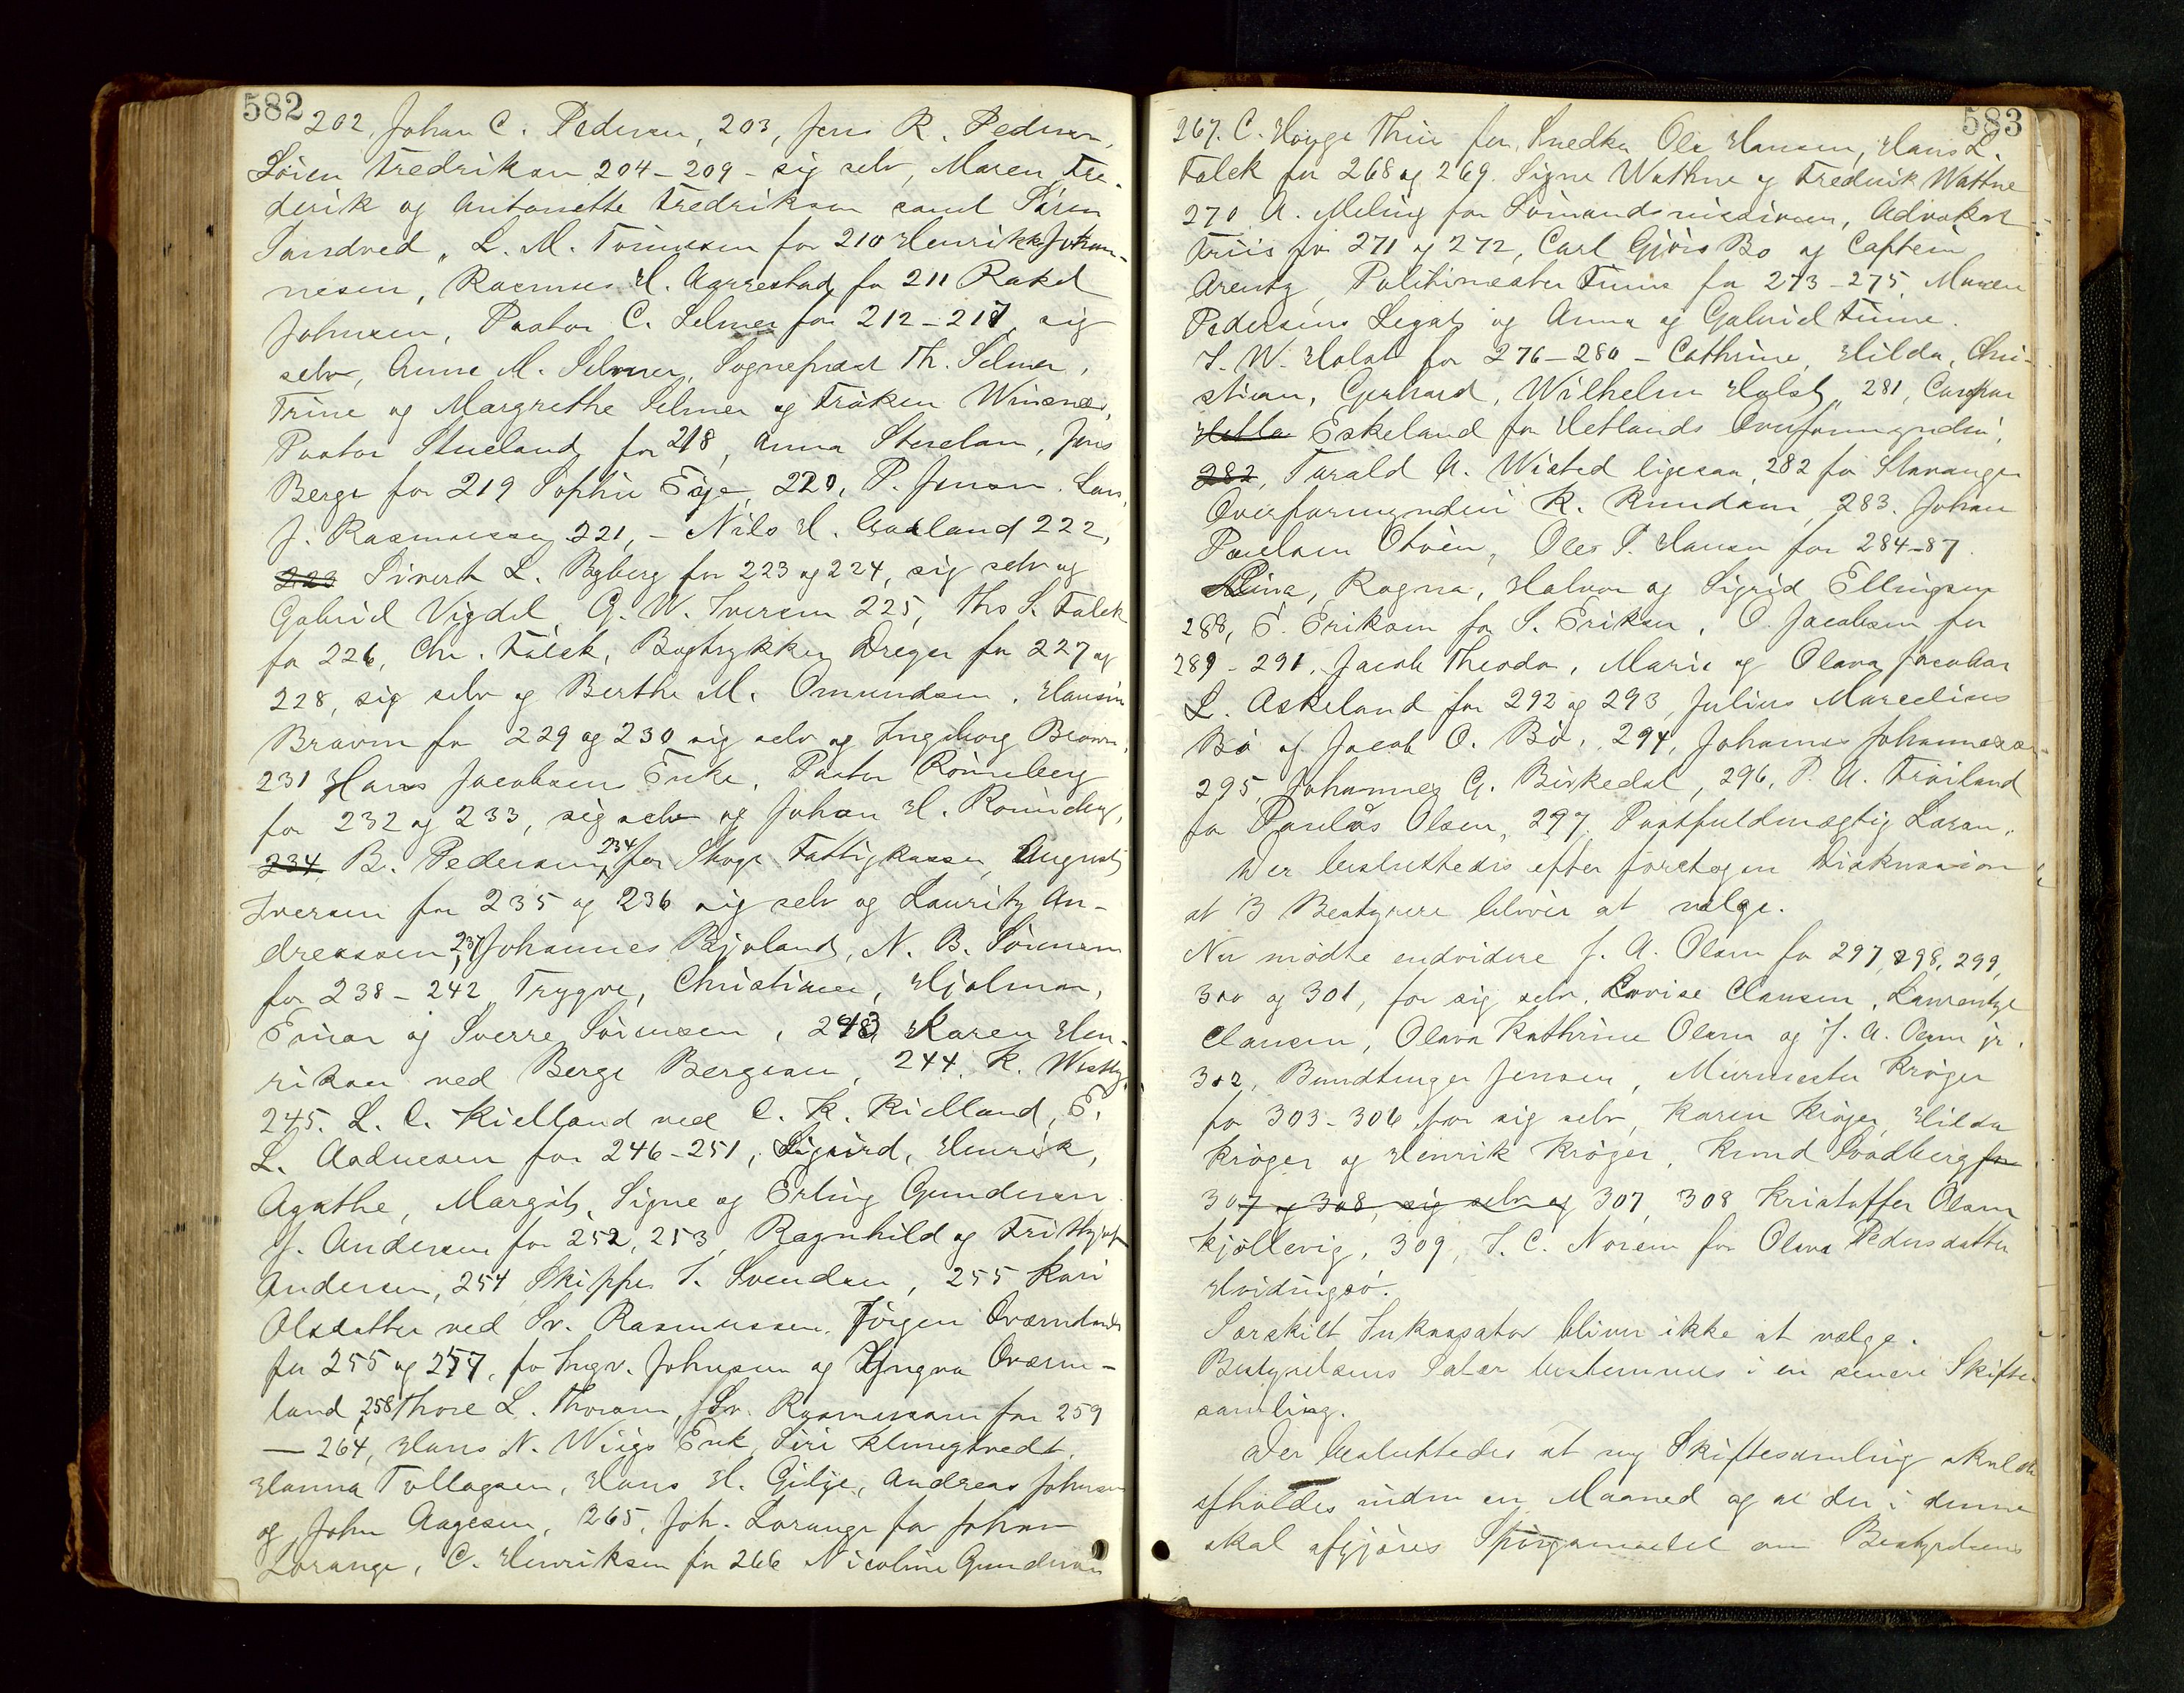 582
202, Johan C. Pedersen, 203, Jens R. Pedersen,
Sören Fredriksen 204-209 - sig selv, Maren, Fre-
derik og Antonette Fredriksen samt Sören
Sandved, L. M. Tönnessen for 210 Henrikke Johan-
nesen, Rasmus H. Aarrestad for 211 Rakel
Johnsen, Pastor C. Selmer for 212-217, sig
selv, Anne M. Selmer, Sogneprest Th. Selmer,
Trine og Margrethe Selmer og Fröken Winsnes,
Pastor Stueland for 218, Anna Stueland, Jens
Berge for 219 Sophie Eye, 220, P. Jensen. Lars
J. Rasmussen 221, - Nils H. Aadland 222,
223 Sivert L. Byberg for 223 og 224, sig selv og
Gabriel Vigdel, G. W. Iversen 225, Ths S. Falck
for 226, Chr. Falck, Bogtrykker Dreyer for 227 og
228, sig selv og Berthe M. Omundsen, Hansine
Bravm for 229 og 230 sig selv og Ingeborg Bravm,
231 Hans Jacobsens Enke, Pastor Rönneberg
for 232 og 233, sig selv og Johan H. Rönneberg,
234 B. Pedersen, 234 for Skoge Fattigkasse, August
Iversen for 235 og 236 sig selv og Lauritz An-
dreassen, 237 Johannes Bjoland, N. B. Sörensen
for 238-242 Trygve, Christiane, Hjalmar,
Einar og Sverre Sörensen, 243 Karen Hen-
riksen ved Berge Bergesen, 244, K. Westly,
245. L. C. Kielland ved C. K. Kielland, E.
L. Aadnesen for 246-251, Sigurd, Henrik,
Agathe, Margit, Signe og Erling Gundersen
J. Andersen for 252, 253, Ragnhild og Frithjof
Andersen, 254 Skipper S. Svendsen, 255 Kari
Olsdatter ved Sv. Rasmussen, Jörgen Oværnland
for 255 og 257, for Ingv. Johnsen og Yngva Oværn-
land, 258 Thore L. Thorsen, Sv. Rasmussen for 259
- 264, Hans N. Wiigs Enk, Siri Klungtvedt,
Hanna Tollagsen, Hans H. Gilje, Andreas Johnsen
og John Aagesen, 265, Joh. Lorange for Johan
Lorange, C. Henriksen for 266 Nicoline Gundersen
583
267. C. Houge Thiis for Snedker Ole Hansen, Hans L.
Falck for 268 og 269. Signe Wathne og Fredrik Wathne
270 A. Meling for Sömandsmissionen, Advokat
Friis for 271 og 272, Carl Gjörs Bo og Captein
Arentz, Politimester Finne for 273-275, Maren
Pedersens Legat og Anna og Gabriel Finne.
S. W. Holst for 276-280 - Cathrine, Hilda, Chri-
stian, Gerhard, Wilhelm Holst, 281, Caspar
Eskeland for Hetlands Overformynderi,
282, Tarald A. Wisted ligesaa, 282 for Stavanger
Overformynderi K. Knudsen, 283. Johan
Poulsen, Ole S. Hansen for 284-87
Lina, Ragna, Halvor og Sigrid Ellingsen
288, E. Eriksen for S. Eriksen, O. Jacobsen for
289-291, Jacob Theodor, Marie og Olava Jacobsen
L. Askeland for 292 og 293, Julius Marcelius
Bö og Jacob O. Bö, 294, Johannes Johannessen
295, Johannes G. Birkedal, 296, P. A. Fröiland
for Paulus Olsen, 297, Postfuldmægtig Larsen.
Der besluttedes efter foretagen Diskussion
at 3 Bestyrere bliver at vælge.
Nu mödte endvidere J. A. Olsen for 297, 298, 299,
300 og 301, for sig selv, Lovise Clausen, Laurentze
Clausen, Olava Kathrine Olsen og J. A. Olsen jr.
302, Bundtmager Jensen, Murmester Kröger
for 303-306 for sig selv, Karen Kröger, Hilda
Kröger og Henrik Kröger, Knud Svadberg for
307 og 308, sig selv og 307, 308 Kristoffer Olsen
Kjöllevig, 309, S. C. Norem for Olava Pedersdatter
Hvidingsö.
Særskilt Inkassator bliver ikke at vælge.
Bestyrelsens Salær bestemmes i en senere Skifte-
samling.
Der besluttedes at ny Skiftesamling skulde
afholdes inden en Maaned og at der i denne
skal afgjöres Spörgsmaalet om Bestyrelsens